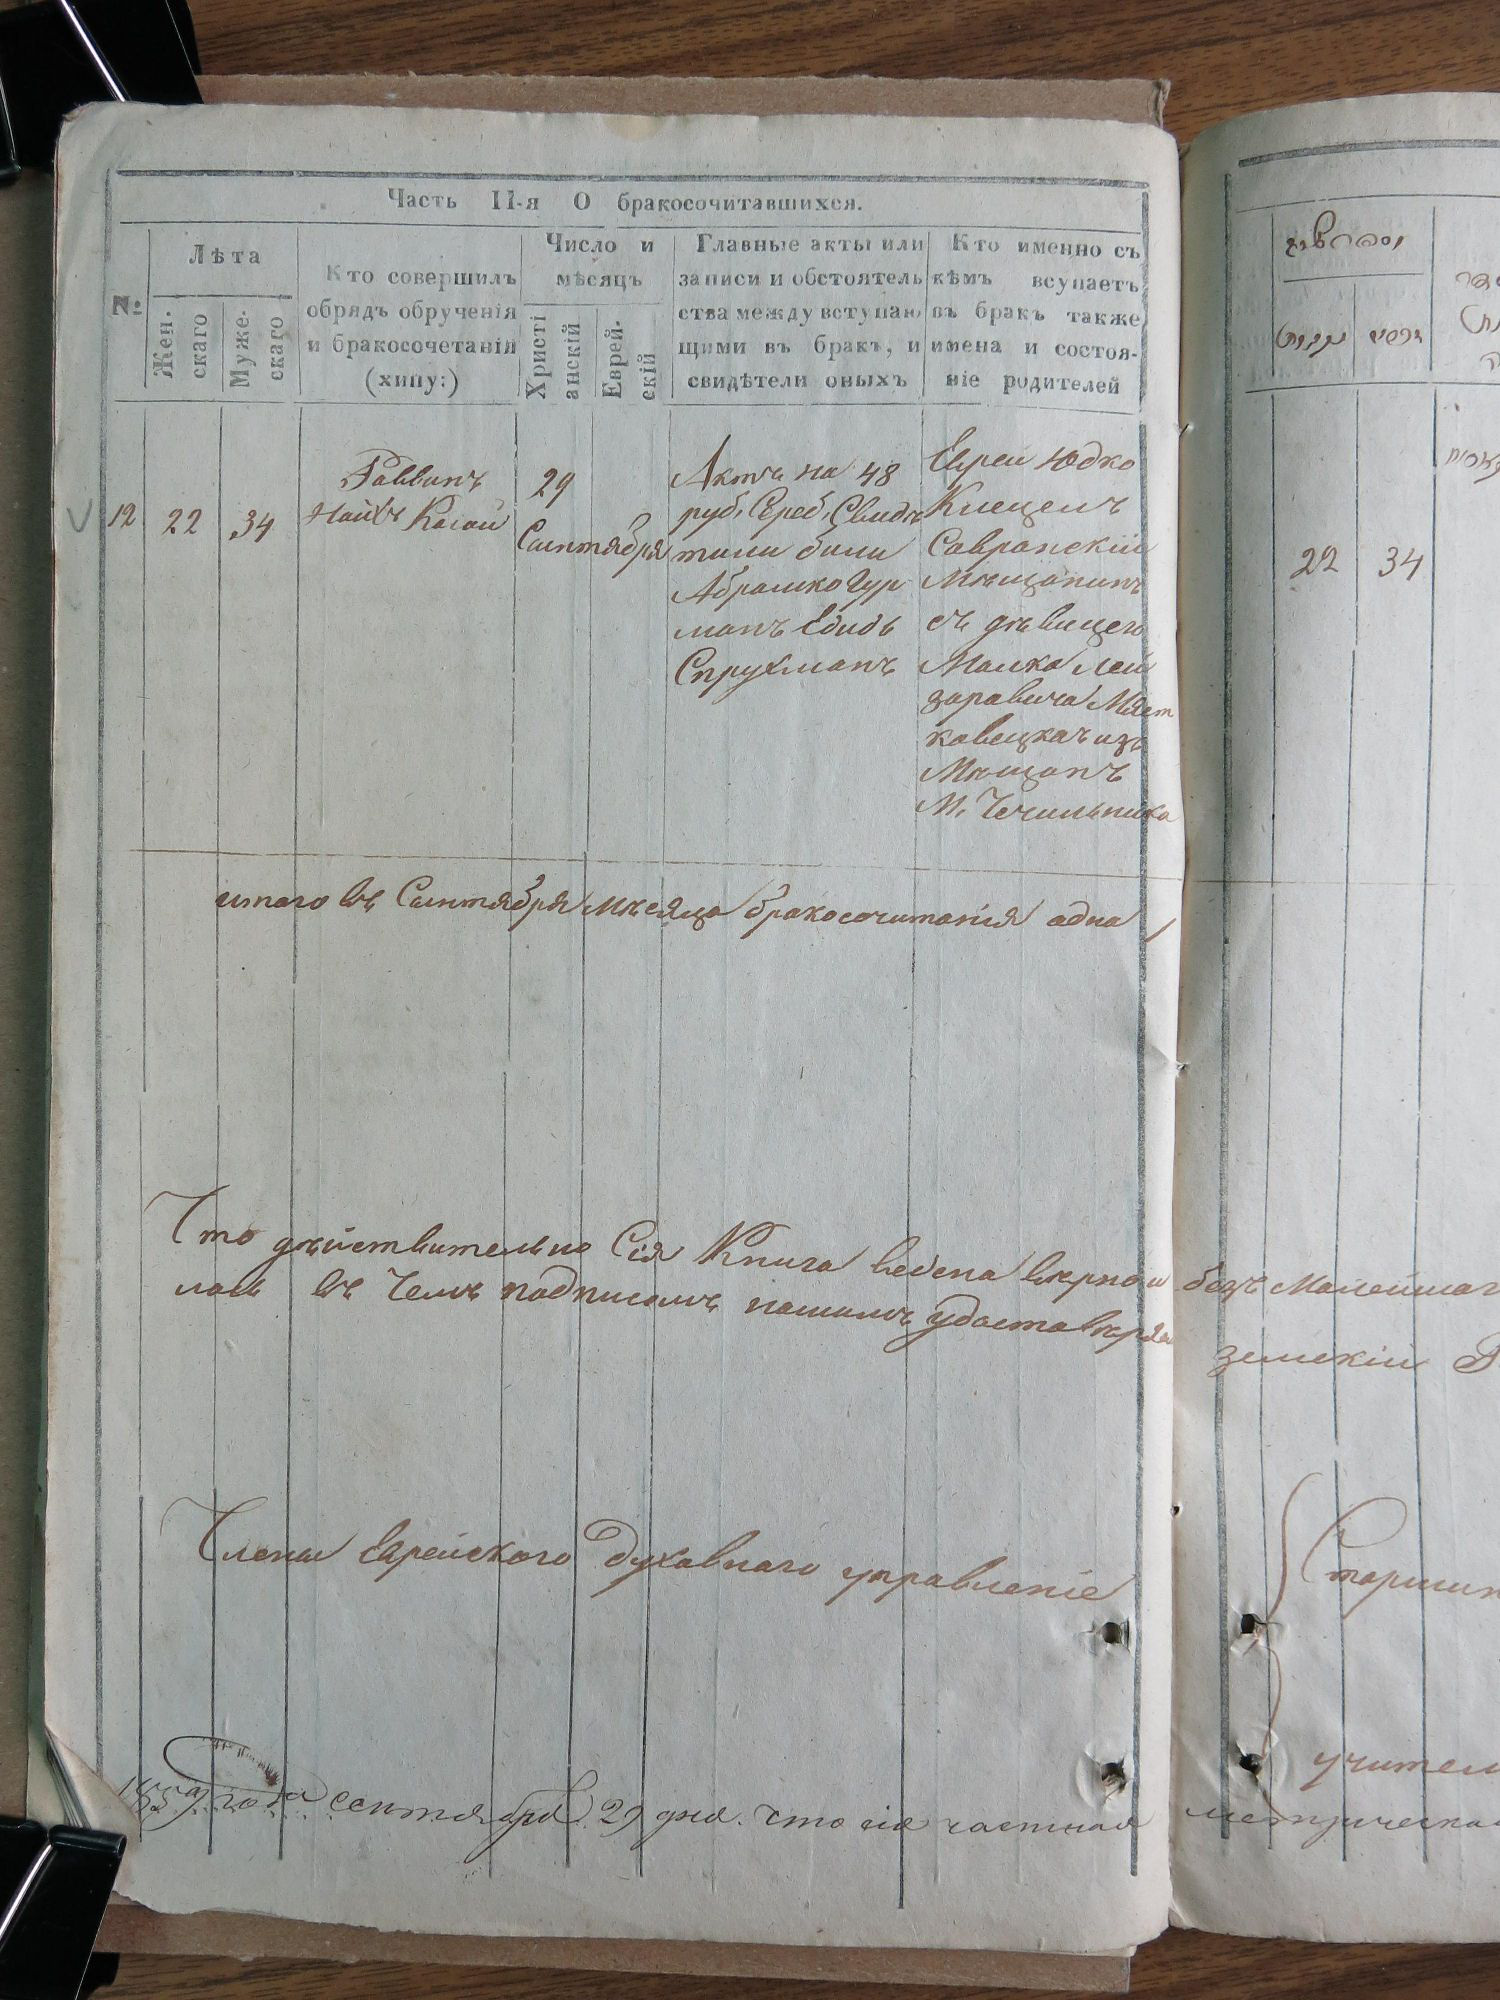 Часть II-я О бракосочитавшихся.
№
Лѣта
Жен.
скаго
Муже-
скаго
Кто совершилъ
обрядъ обрученія
и бракосочетанія
(хипу:)
Число и
мѣсяцъ
Христі
анскій
Еврей-
скій
Главные акты или
записи и обстоятель
ства между вступаю
щими въ бракъ, и
свидѣтели оныхъ
Кто именно съ
кѣмъ всупаетъ
въ бракъ также
имена и состоя-
ніе родителей
12
22
34
Раввинъ
Коган
29
Сентября
Актъ на 48
руб. Сереб. Свидѣ
тили били
Абрамко Гур
манъ
Еврей Юдко
Савранскій
Мѣщанинъ
съ дѣвицею
Малка Лей
заравича Мяст
кавецкая изъ
Мѣщанъ
М. Чечильника
итого въ Сентября мѣсяца бракосочитанія адна /
Что дѣйствительно Сія Книга ведена вѣрно и безъ Малейшаг
въ Чемъ подписомъ нашимъ удоставѣряи
земскій
Члени Еврейского Духавнаго управленіе
Старшин
учител
1859 года сентября 29 дня. что сія частная метрическая
22
34